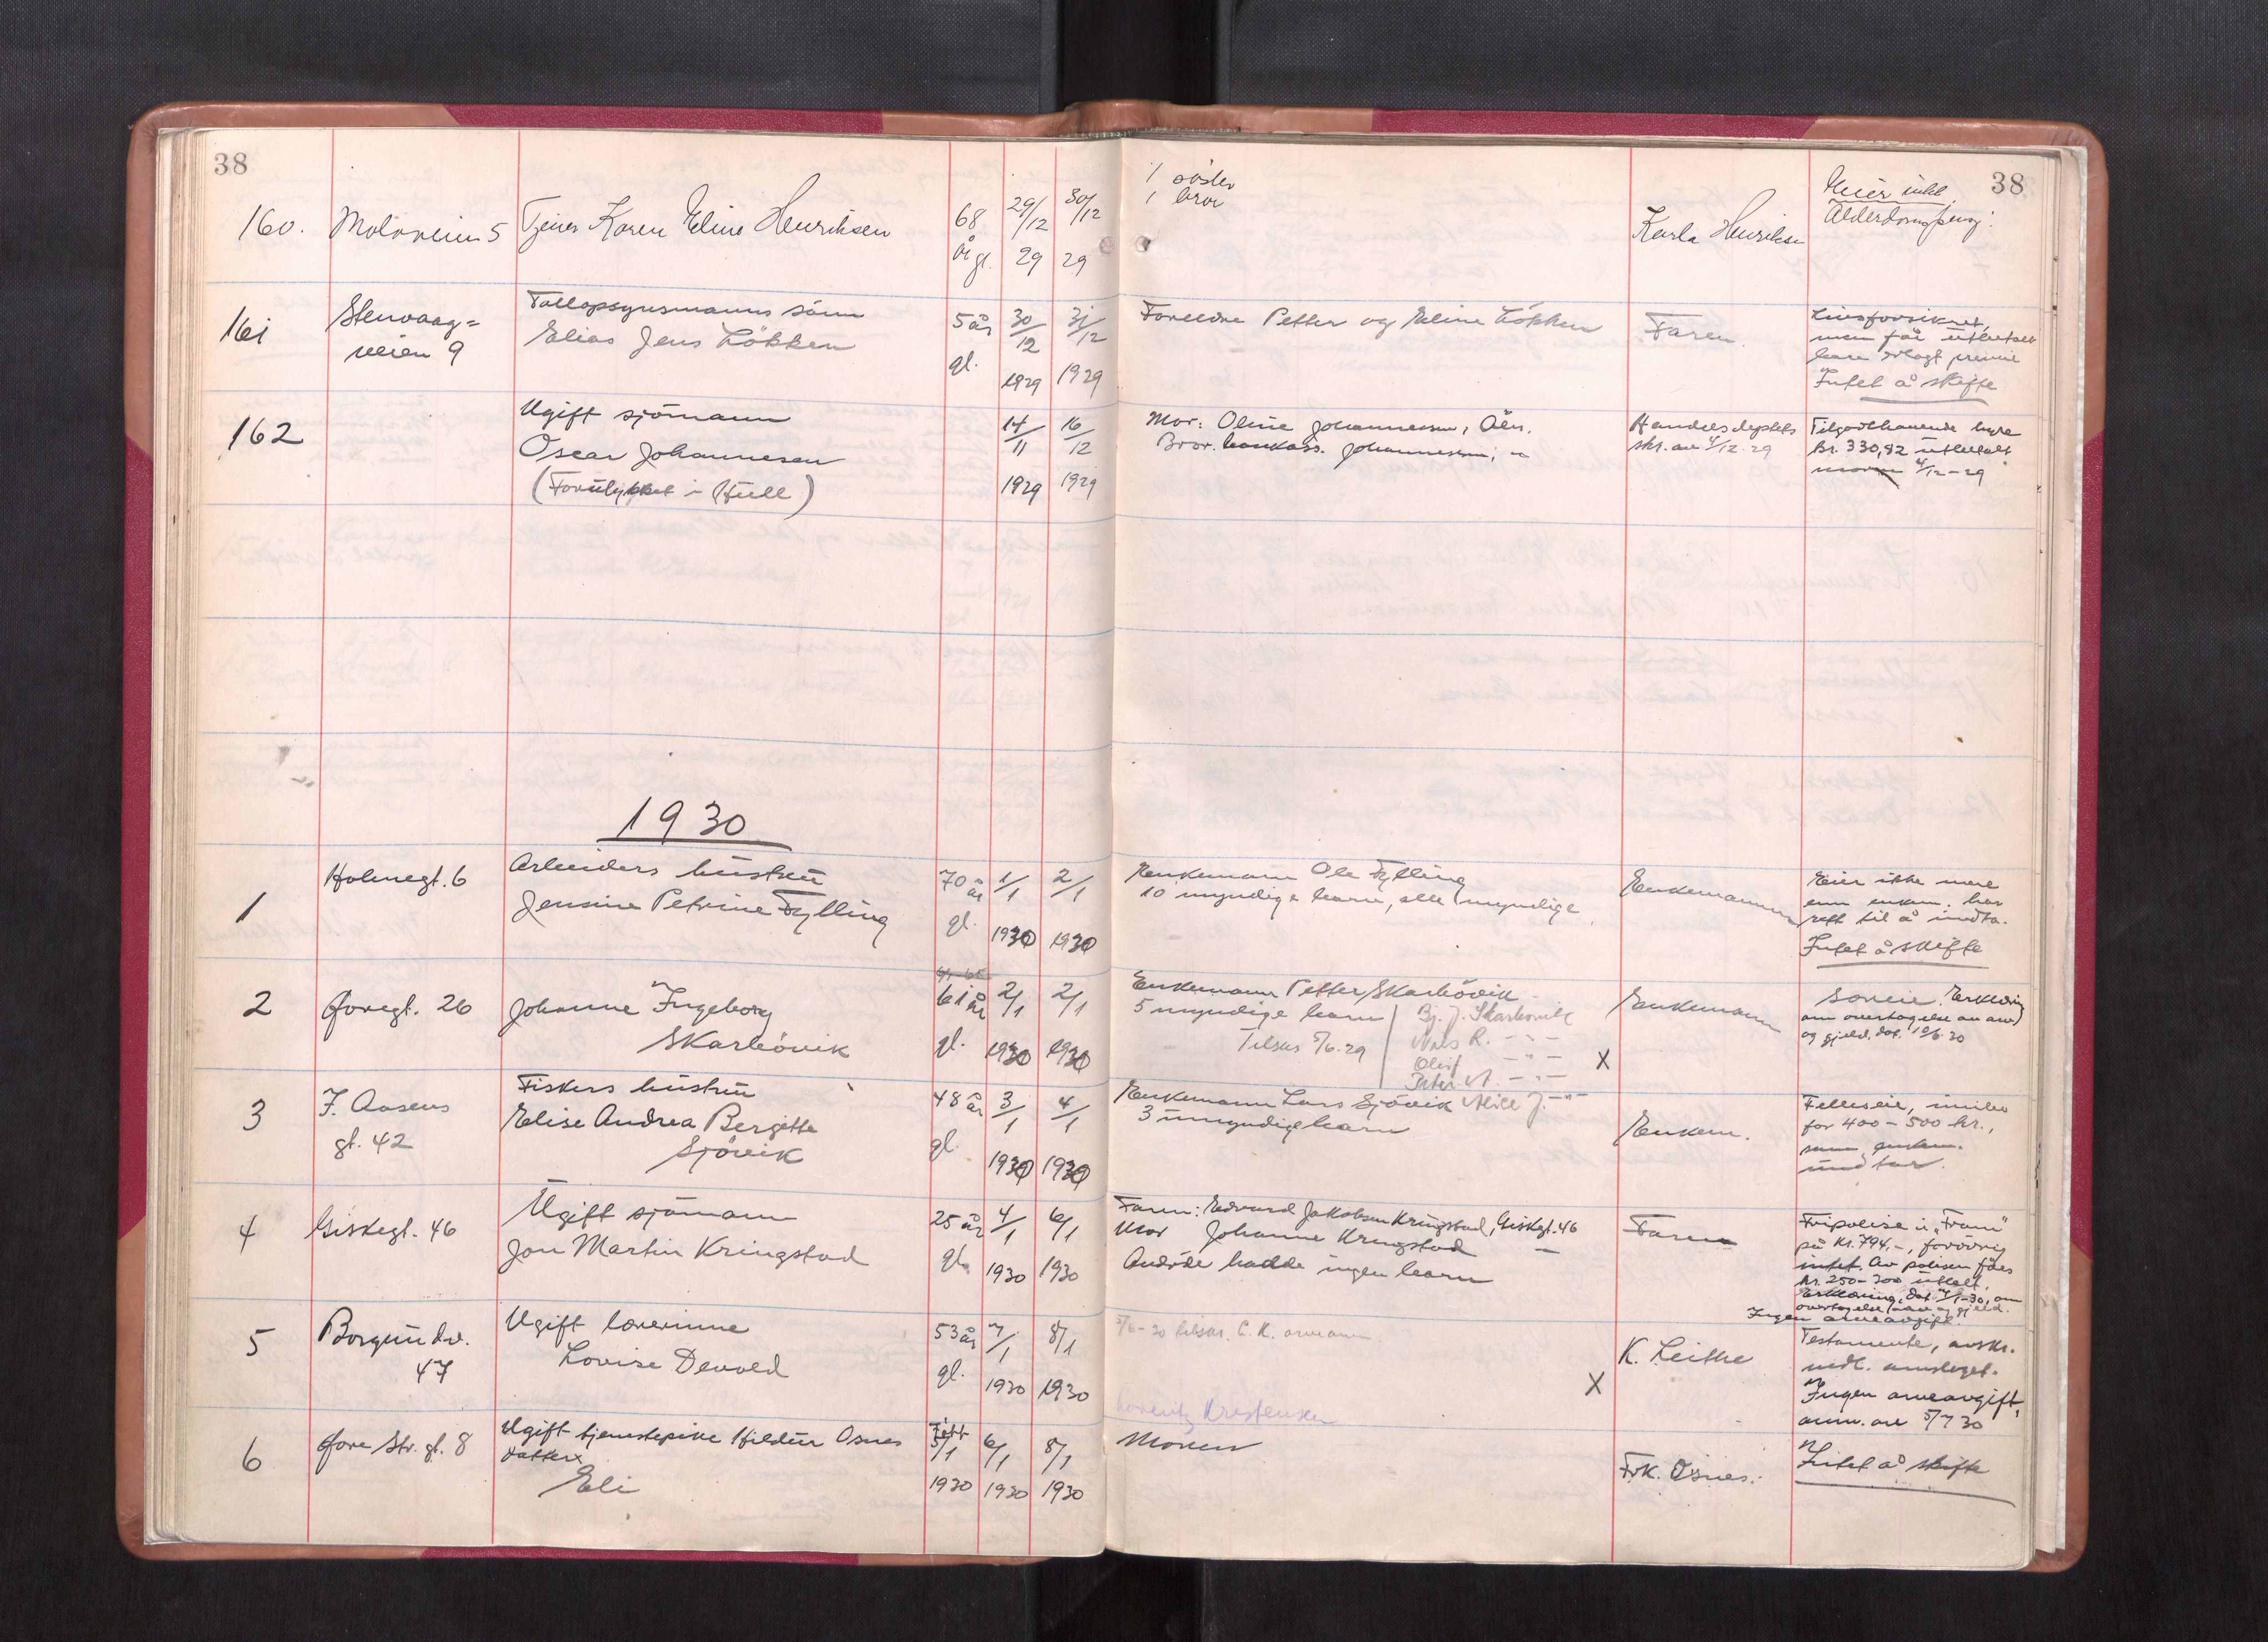 38
160. Moloveien 5 Tjener Karen Eline Henriksen 68 år gl. 29/12 29 30/12 29
1 søster
1 bror
Karla Henriksen
Eier intet
38
161 Stenvaag=
veien 9
Tollopsynsmanns sönn
Elias Jens Lökken
5 år gl. 30/12 1929 31/12 1929
Foreldre Petter og Eline Lökken
Faren.
Livsforsikret,
men får utbetalt
bare
premie
Intet å skifte
162
Ugift sjömann
Oscar Johannesen
(Forulykket i Hull)
14/11 1929 16/12 1929
Mor: Oline Johannesen,
Bror. Johannesen, "
Handelsdeptets
skr. av 4/12 29
Tilgodehavende hyre
kr. 330,92 utbetalt
moren 4/12-29
1930
1 Holmegt. 6
Arbeiders hustru
Jensine Petrine Fylling
70 år gl. 1/1 1930 2/1 1930
Enkemann Ole Fylling
10 myndige barn, alle myndige
Enkemannen
Eier ikke mere
enn enkem. har
rett til å indta.
Intet å skifte
2 Övregt. 26
Johanne Ingeborg
Skarbövik
61 år gl. 2/1 1930 2/1 1930
Enkemann Petter Skarbövik
5 myndige barn
Tilskr 5/6.29
Bj. J. Skarbövik
Nils R. - " -
Oluf - " -
Peter A. - " -
Alice J. - " -
X
Enkemann
Særeie. Erklæring
om overtagelse av arv
og gjeld, dat. 10/6 30
3 J. Aasens
gt. 42
Fiskers hustru
Elise Andrea Bergitte
Sjövik
48 år gl. 3/1 1930 4/1 1930
Enkemann Lars Sjövik
3 umyndige barn
Enkem.
Felleseie, innbo
for 400-500 kr.,
som enkem.
indtar.
4 Giskegt. 46
Ugift sjömann
Jon Martin Kringstad
25 år gl. 4/1 1930 6/1 1930
Faren: Edvard Jakobsen Kringstad, Giskegt. 46
Mor Johanne Kringstad —
Avdöde hadde ingen barn
Faren
Fripolise i "Fram"
på kr. 794.-, forövrig
intet. Av polisen fåes
kr. 250-300 utbetalt.
Erklæring, dat. 7/1-30, om
overtagelse av arv og gjeld.
Ingen arveavgift
5 Borgundv.
47
Ugift lærerinne
Lovise Devold
53 år gl. 7/1 1930 8/1 1930
5/6-30 tilskr. C. K.
X
K. Leithe
Testamente, avskr.
vedl. anmeldt.
Ingen arveavgift,
anm. av 5/7 30
Kristensen
6 Övre Str. gt. 8
Ugift tjenestepike Hildur Osnes
datter
Eli
Född 5/1 1930 6/1 1930 8/1 1930
Moren
Frk. Osnes.
Intet å skifte